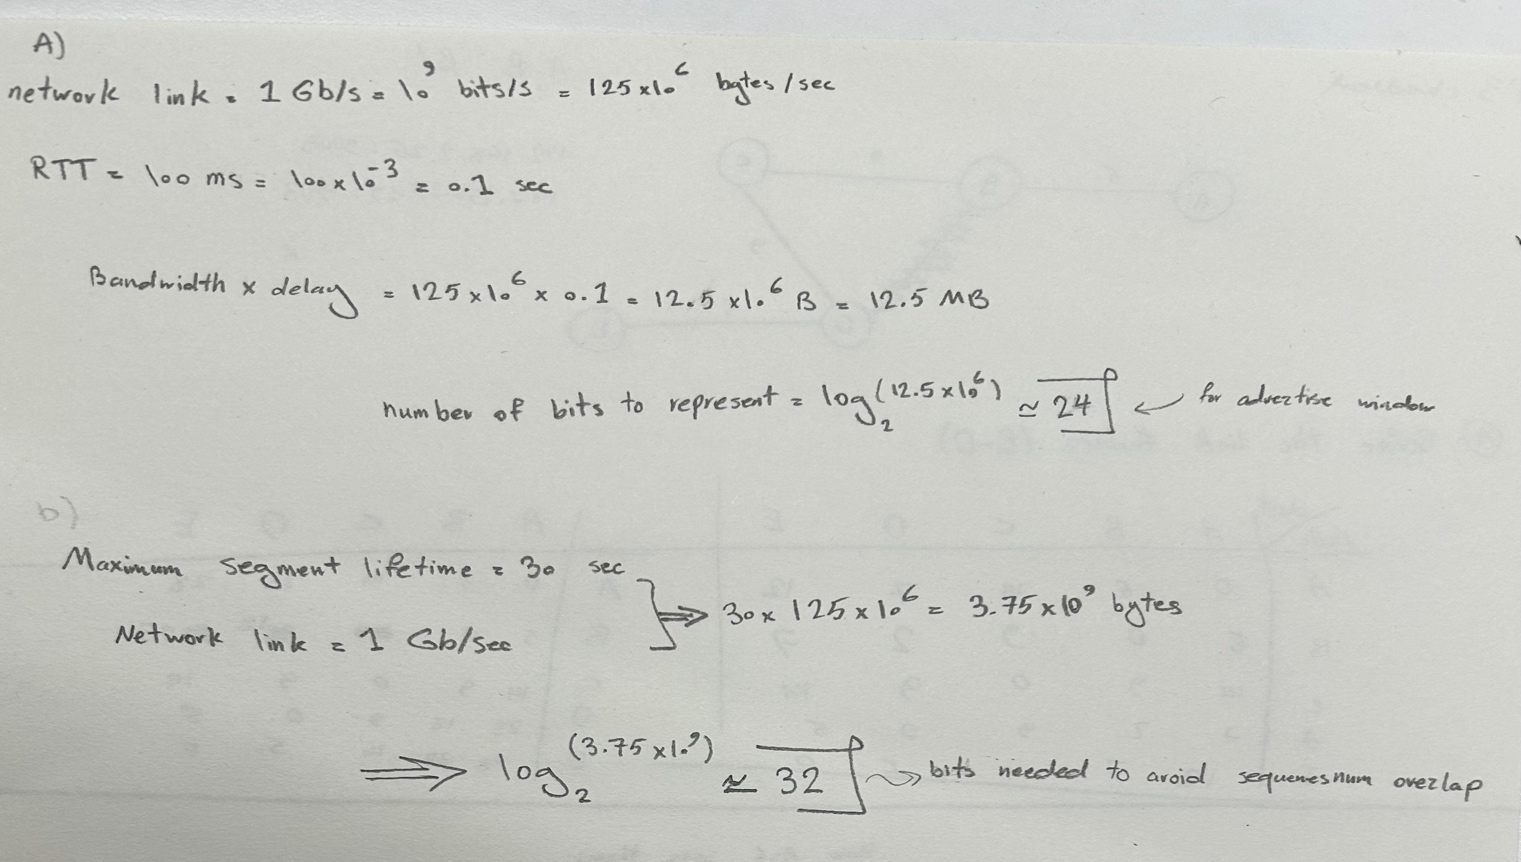 A)
network link = 1 Gb/s = 10^9 bits/s = 125 x 10^6 bytes/sec
RTT = 100 ms = 100 x 10^-3 = 0.1 sec
Bandwidth x delay = 125 x 10^6 x 0.1 = 12.5 x 10^6 B = 12.5 MB
number of bits to represent = log_2 (12.5 x 10^6) ≃ 24 ← for advertise window
b)
Maximum segment lifetime = 30 sec
Network link = 1 Gb/sec
⇒ 30 x 125 x 10^6 = 3.75 x 10^9 bytes
⇒ log_2 (3.75 x 10^9) ≃ 32 → bits needed to avoid sequenesnum overlap